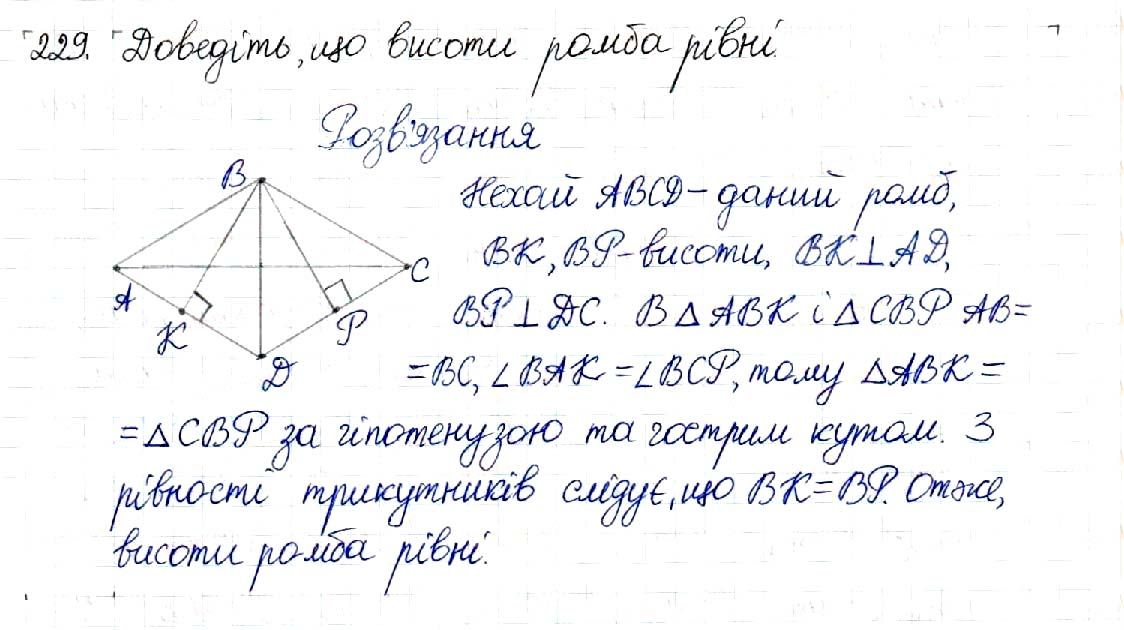 229. Доведіть, що висоти ромба рівні.
Розв'язання
B
A
K
D
P
C
Нехай ABCD – даний ромб,
BK, BP – висоти, BK ⊥ AD,
BP ⊥ DC. В △ ABK і △ CBP AB =
= BC, ∠ BAK = ∠ BCP, тому △ ABK =
= △ CBP за гіпотенузою та гострим кутом. З
рівності трикутників слідує, що BK = BP. Отже,
висоти ромба рівні.